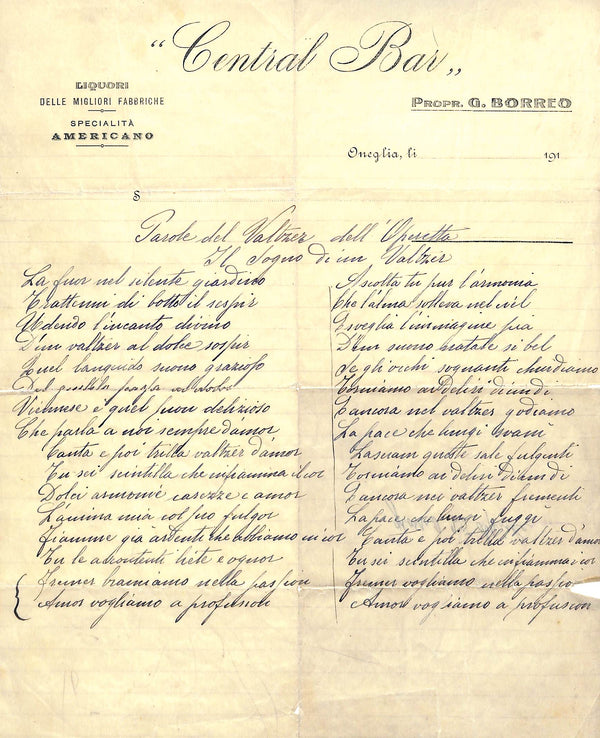 “Central Bar„
LIQUORI
DELLE MIGLIORI FABBRICHE
SPECIALITÀ
AMERICANO
PROPR. G. BORREO
Oneglia, li 191
S
Parole del Valtzer dell'Operetta
Il Sogno di un Valtzer
La fuor nel silente giardino
Trattenni di botto il respir
Udendo l'incanto divino
D'un valtzer al dolce sospir
Quel languido suono grazioso
Del
Viennese è quel suon delizioso
Che parla a noi sempre d'amor
Canta e poi trilla valtzer d'amor
Tu sei scintilla che infiamma il cor
Dolci armonie carezze e amor
L'anima mia col fulgor
Fiamme già ardenti che abbiamo in cor
Tu le liete e ognor
Fremer bramiamo nella passion
Amor vogliamo a profusion
Ascolta tu pur l'armonia
Che l'alma solleva nel ciel
E sveglia l'immagine pia
D'un suono natale si bel
Se gli occhi sognanti chiudiamo
Torniamo ai delisi di un dì
E ancora nel valtzer godiamo
La pace che lungi svanì
Lasciam queste sale fulgenti
Torniamo ai delisi di un dì
E ancora nei valtzer frementi
La pace che lungi fuggì
Canta e poi trilla valtzer d'amor
Tu sei scintilla che infiamma i cor
Fremer vogliamo nella passio
Amor vogliamo a profusion